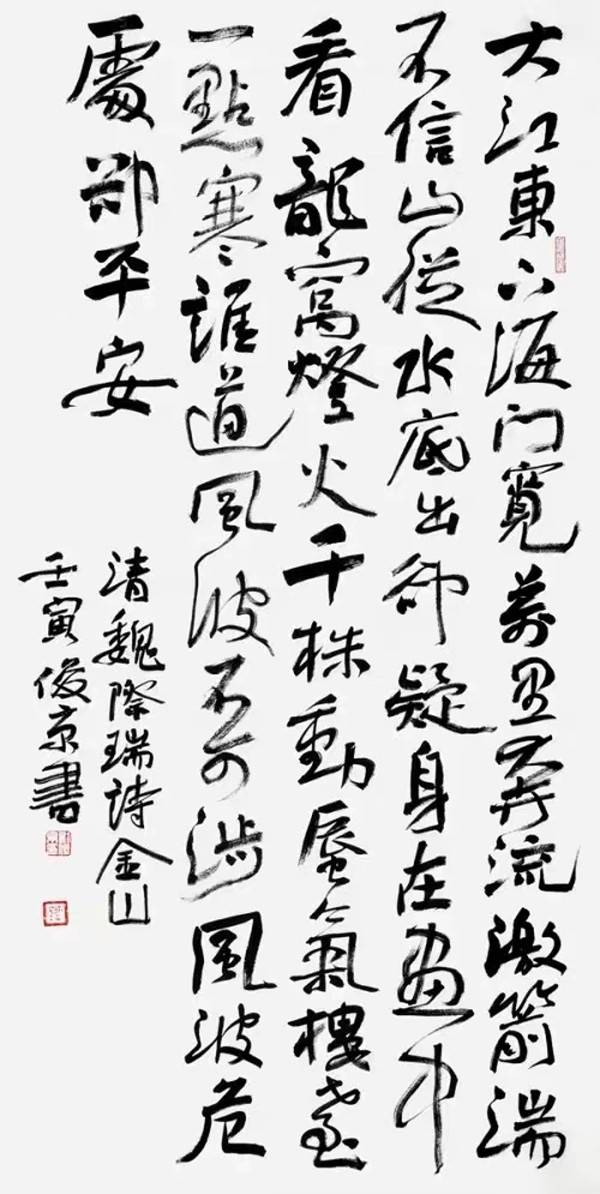 大江東下海門寬萬里奔流激箭湍
不信山從水底出卻疑身在畫中
看龍窩燈火千株動蜃氣樓臺
一點寒誰道風波不可涉風波危
處卻平安
清魏際瑞詩金山
壬寅俊京書